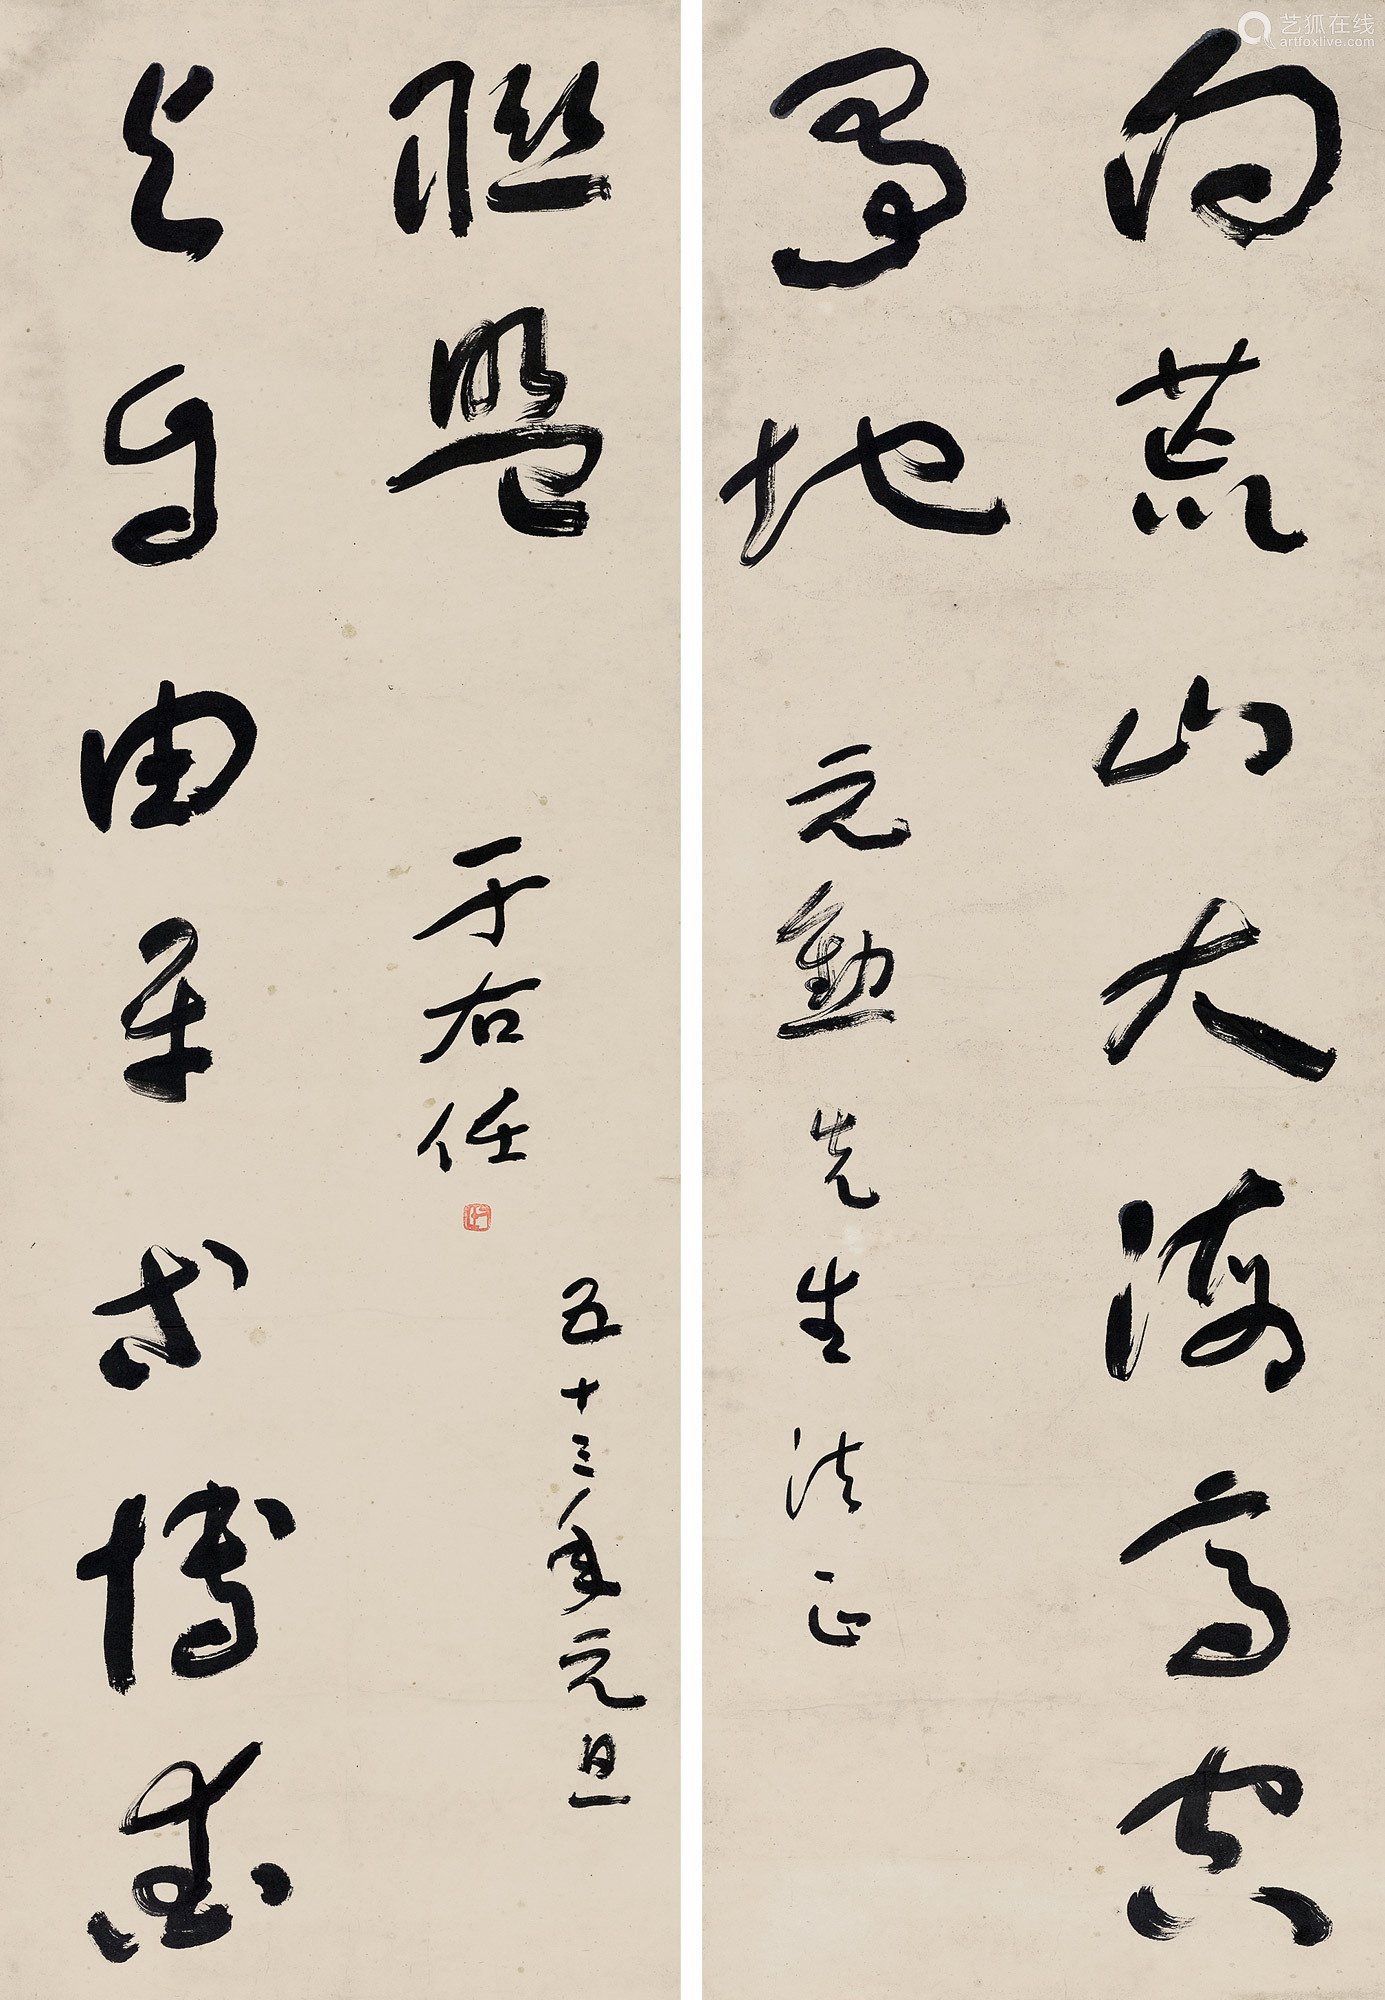 向荒山大海高空
地
元勳先生法正
与自由平等博愛
聯盟
于右任
五十三年元旦
艺狐在线
artfoxlive.com